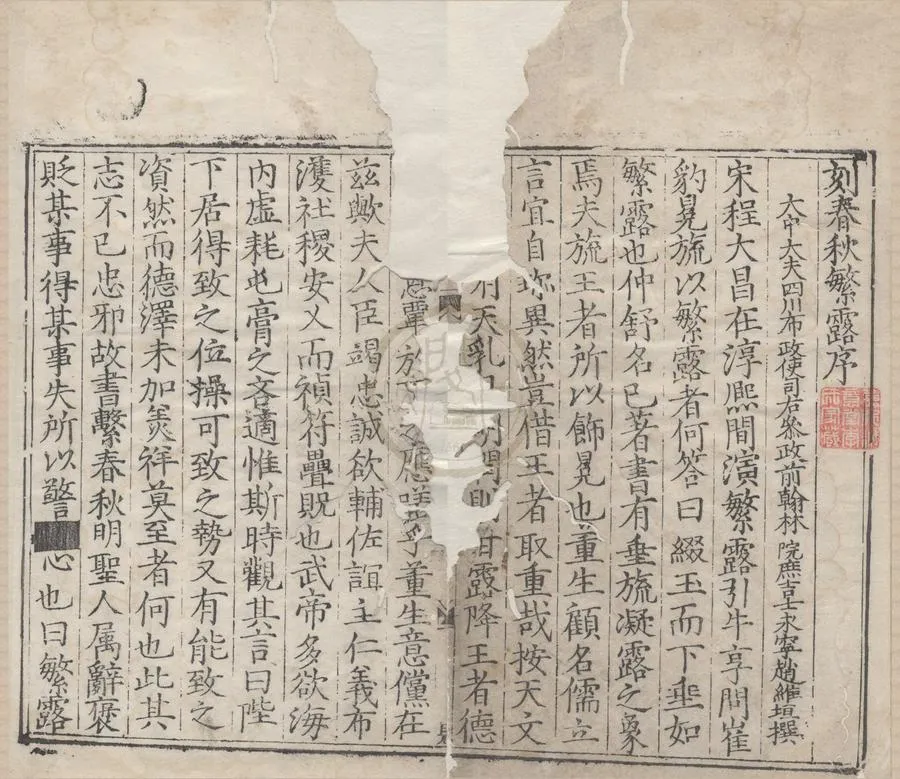 刻春秋繁露序
大中大夫四川布政使司右叅政前翰林院庶吉士永寧趙維垣撰
宋程大昌在淳熈間演繁露引牛亨問崔
豹冕旒以繁露者何答曰綴玉而下垂如
繁露也仲舒名已著書有垂旒凝露之象
焉夫旒王者所以飾冕也董生顧名儒立
言宜自珎異然豈借王者取重哉按天文
天乳 甘露降王者德
覃於下之應 乎董生意儻在
兹歟夫人臣竭忠誠欲輔佐誼主仁義布
濩社稷安乂而禎符疊貺也武帝多欲海
内虚耗屯膏之吝適惟斯時觀其言曰陛
下居得致之位操可致之勢又有能致之
資然而德澤未加羙祥莫至者何也此其
志不已忠邪故書繫春秋明聖人属辭褒
貶某事得某事失所以警 心也曰繁露